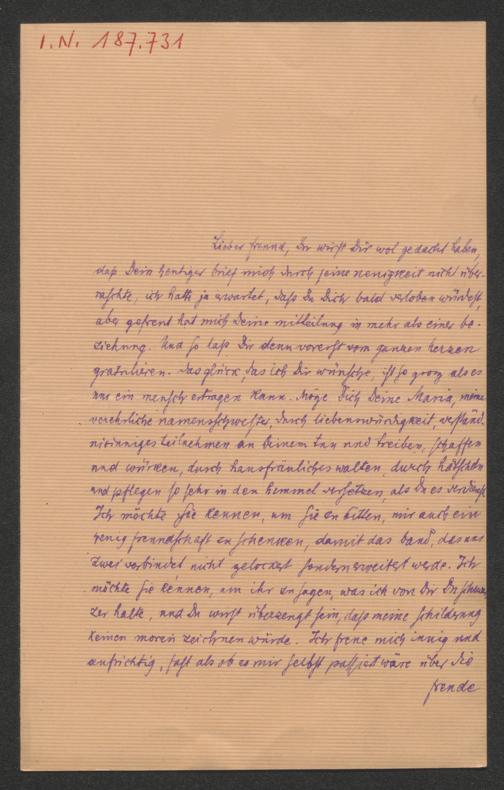 I.N. 187.731
Lieber freund, Du wirst Dir wol gedacht haben,
daß Dein heutiger brief mich durch seine neuigkeit nicht über-
raschte, ich hatte ja erwartet, daß Du Dich bald verloben würdest,
aber gefreut hat mich Deine mitteilung in mehr als einer be-
ziehung. Und so laß Dir denn vorerst vom ganzen herzen
gratulieren. Das glück, das ich Dir wünsche, ist so groß als es
nur ein mensch ertragen kann. Möge Dich Deine Maria, meine
verehrliche namensschwester, durch liebenswürdigkeit, verständ-
nissinniges teilnehmen an Deinem tun und treiben, schaffen
und würken, durch hausfräuliches walten, durch hätscheln
und pflegen so sehr in den himmel versetzen, als Du es verdienst.
Ich möchte sie kennen, um sie zu bitten, mir auch ein
wenig freundschaft zu schenken, damit das band, das uns
zwei verbindet nicht gelockert sondern erweitert werde. Ich
möchte sie kennen, um ihr zu sagen, was ich von Dir Du
zer halte, und Du wirst überzeugt sein, daß meine schilderung
keinen moren zeichnen würde. Ich freue mich innig und
aufrichtig, fast als ob es mir selbst passiert wäre über die
freude